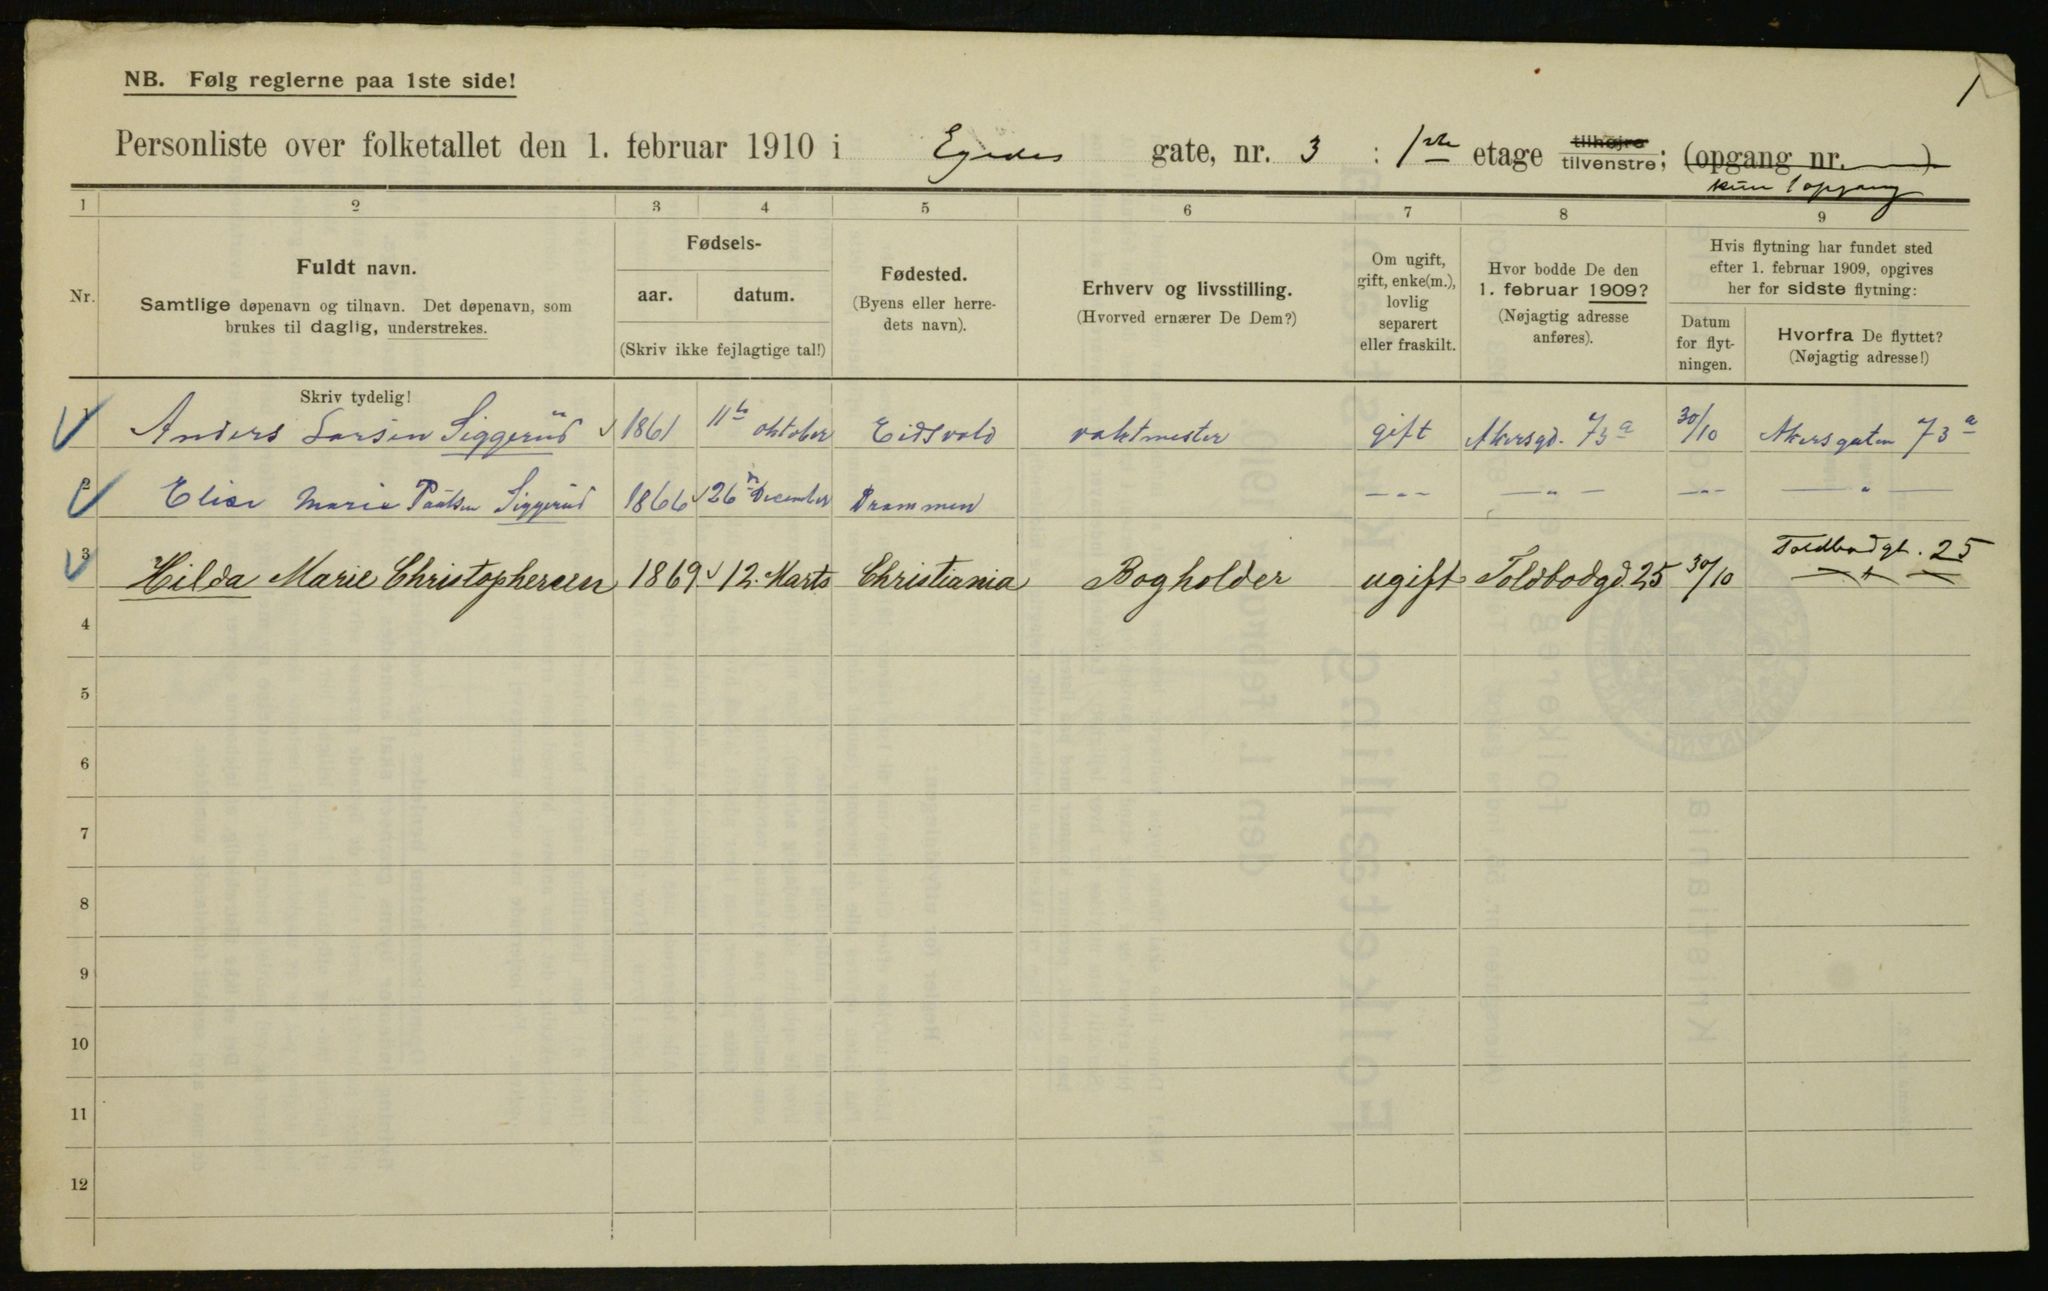 1
NB. Følg reglerne paa 1ste side!
Personliste over folketallet den 1. februar 1910 i Egedes gate, nr. 3 : 1ste etage tilhøjre tilvenstre; (opgang nr. ).
kun 1 opgang
1 2 3 4 5 6 7 8 9
Nr.
Fuldt navn.
Samtlige døpenavn og tilnavn. Det døpenavn, som
brukes til daglig, understrekes.
Fødsels-
aar. datum.
(Skriv ikke fejlagtige tal!)
Fødested.
(Byens eller herre-
dets navn).
Erhverv og livsstilling.
(Hvorved ernærer De Dem?)
Om ugift,
gift, enke(m.),
lovlig
separert
eller fraskilt.
Hvor bodde De den
1. februar 1909?
(Nøjagtig adresse
anføres).
Hvis flytning har fundet sted
efter 1. februar 1909, opgives
her for sidste flytning:
Datum
for flyt-
ningen.
Hvorfra De flyttet?
(Nøjagtig adresse!)
Skriv tydelig!
1 Anders Larsen Siggerud 1861 11te oktober Eidsvold vaktmester gift Akersgd. 73a 30/10 Akersgaten 73a
2 Elise Marie Paulsen Siggerud 1866 26 December Drammen —„— —„— —„— —„—
3 Hilda Marie Christophersen 1869 12. Marts Christiania Bogholder ugift Toldbodgd. 25 30/10 Toldbodgt. 25
—„—
4
5
6
7
8
9
10
11
12